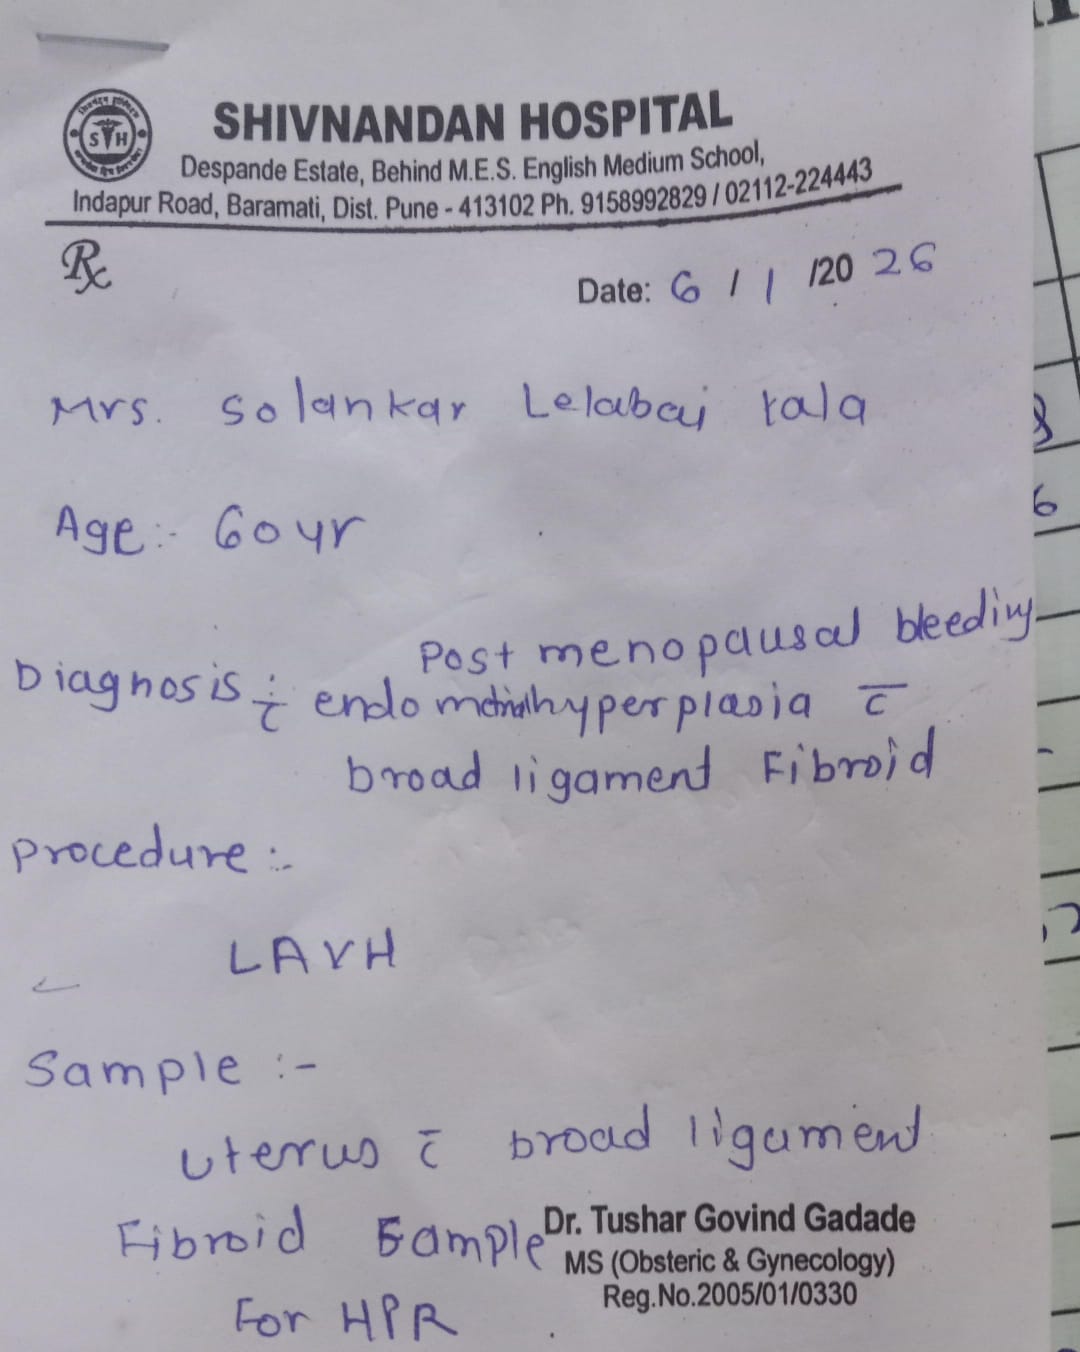 SHIVNANDAN HOSPITAL
Despande Estate, Behind M.E.S. English Medium School,
Indapur Road, Baramati, Dist. Pune - 413102 Ph. 9158992829 / 02112-224443
Rx
Date: 6 / 1 /20 26
Mrs. Solankar Lelabai tala
Age :- 60 yr
Post menopausal bleeding
Diagnosis :- c̄ endometrial hyperplasia c̄
broad ligament Fibroid
Procedure :-
LAVH
Sample :-
Uterus c̄ broad ligament
Fibroid Sample
For HPR
Dr. Tushar Govind Gadade
MS (Obsteric & Gynecology)
Reg.No.2005/01/0330